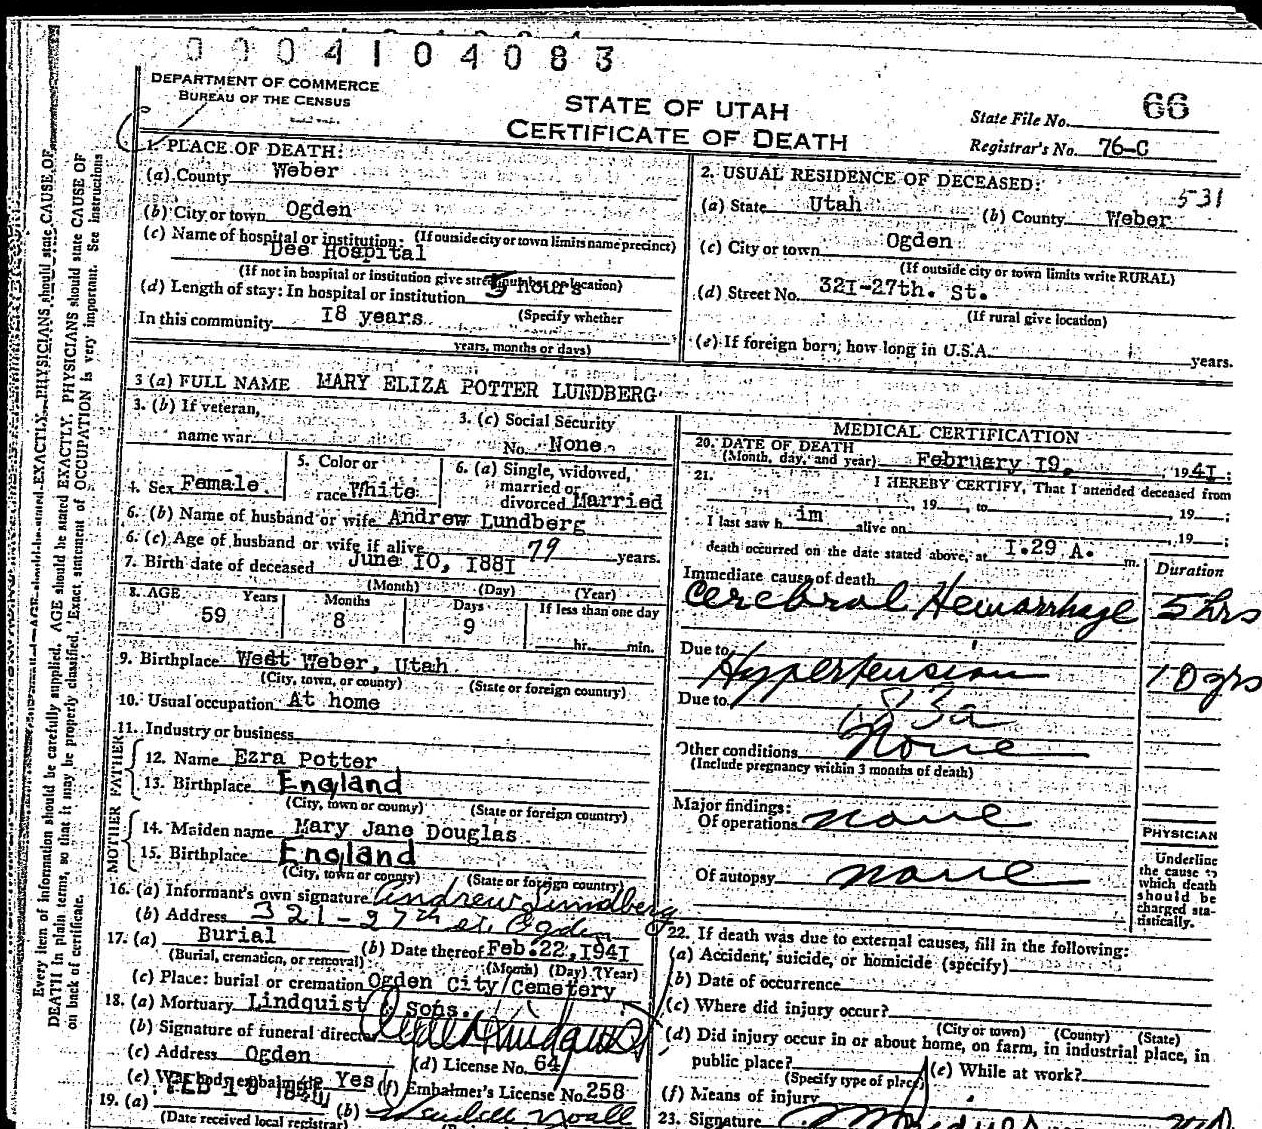 0004104083
DEPARTMENT OF COMMERCE
BUREAU OF THE CENSUS
STATE OF UTAH
CERTIFICATE OF DEATH
State File No. 66
Registrar's No. 76-C
1. PLACE OF DEATH:
(a) County Weber
(b) City or town Ogden
(If outside city or town limits name precinct)
(c) Name of hospital or institution:
Dee Hospital
(If not in hospital or institution give street number or location)
(d) Length of stay: In hospital or institution 5 hours
(Specify whether
In this community 18 years
years, months or days)
2. USUAL RESIDENCE OF DECEASED:
531
(a) State Utah (b) County Weber
(c) City or town Ogden
(If outside city or town limits write RURAL)
(d) Street No. 321-27th. St.
(If rural give location)
(e) If foreign born, how long in U.S.A. years.
3 (a) FULL NAME MARY ELIZA POTTER LUNDBERG
3. (b) If veteran,
name war
3. (c) Social Security
No. None
4. Sex Female
5. Color or
race White
6. (a) Single, widowed,
married or
divorced Married
6. (b) Name of husband or wife Andrew Lundberg
6. (c) Age of husband or wife if alive 79 years.
7. Birth date of deceased June 10, 1881
(Month) (Day) (Year)
8. AGE Years Months Days If less than one day
59 8 9
hr. min.
9. Birthplace West Weber, Utah
(City, town, or county) (State or foreign country)
10. Usual occupation At home
11. Industry or business
FATHER
12. Name Ezra Potter
13. Birthplace England
(City, town or county) (State or foreign country)
MOTHER
14. Maiden name Mary Jane Douglas
15. Birthplace England
(City, town or county) (State or foreign country)
16. (a) Informant's own signature Andrew Lundberg
(b) Address 321-27th st. Ogden
17. (a) Burial (b) Date thereof Feb. 22, 1941
(Burial, cremation, or removal) (Month) (Day) (Year)
(c) Place: burial or cremation Ogden City Cemetery
18. (a) Mortuary Lindquist & Sons.
(b) Signature of funeral director
(c) Address Ogden (d) License No. 64
(e) Was body embalmed Yes (f) Embalmer's License No. 258
19. (a) FEB 19 (b)
(Date received local registrar)
MEDICAL CERTIFICATION
20. DATE OF DEATH
(Month, day, and year) February 19, 1941:
21. I HEREBY CERTIFY, That I attended deceased from
, 19 , to , 19 ;
I last saw him alive on , 19 ;
death occurred on the date stated above, at 1.29 A. m.
Duration
Immediate cause of death
Cerebral Hemarrhage 5 hrs
Due to
Hypertension 10 yrs
Due to 83a
Other conditions None
(Include pregnancy within 3 months of death)
Major findings:
Of operations none
Of autopsy none
PHYSICIAN
Underline
the cause to
which death
should be
charged sta-
tistically.
22. If death was due to external causes, fill in the following:
(a) Accident, suicide, or homicide (specify)
(b) Date of occurrence
(c) Where did injury occur?
(City or town) (County) (State)
(d) Did injury occur in or about home, on farm, in industrial place, in
public place? (e) While at work?
(Specify type of place)
(f) Means of injury
23. Signature
Every item of information should be carefully supplied. AGE should be stated EXACTLY. PHYSICIANS should state CAUSE OF
DEATH in plain terms, so that it may be properly classified. Exact statement of OCCUPATION is very important. See instructions
on back of certificate.